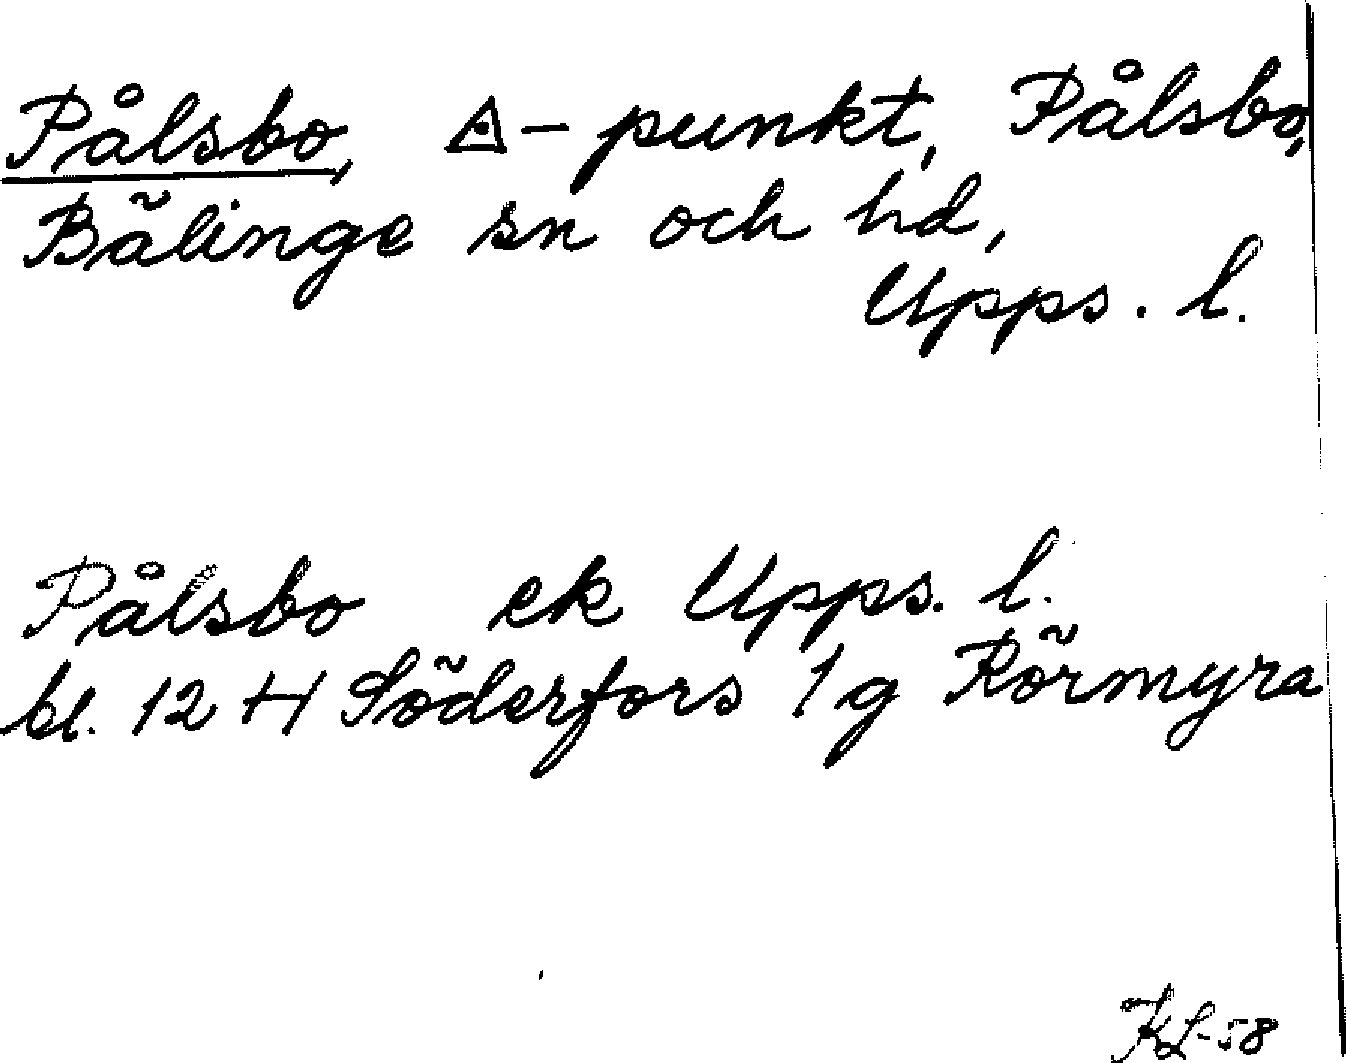 Pålsbo, △-punkt, Pålsbo,
Bälinge sn och hd,
Upps. l.
Pålsbo ek Upps. l.
bl. 12 H Söderfors 1 g Rörmyra
KL-58